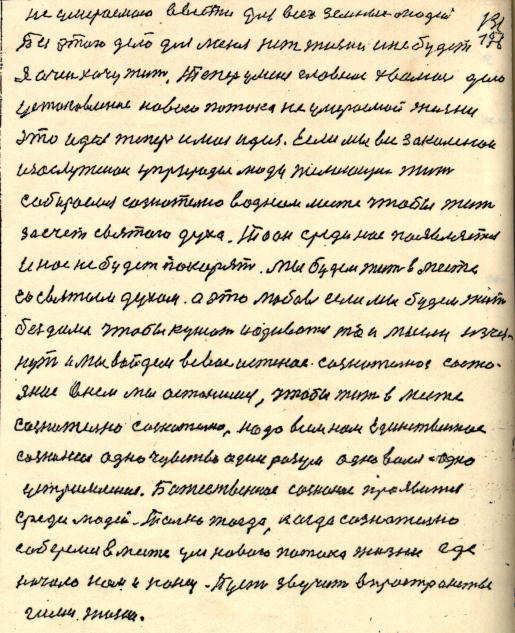 не умираемо ввести для всех земных людей
131
138
Без этого дело для меня нет жизни и не будет
Я очен хочу жит. Теперь у меня главное дело
установление нового потока не умираемой жизни
это идея тепер и моя идея. Если мы все закаленое
и заслуженое у природы люди желающих жит
собираемся сознателно в одном месте чтобы жит
за счет святого духа. То он среди нас появляется
и нас не будет покарят. Мы будем жит в месте
со святым духом. а это любов если мы будем жит
без дела чтобы кушат и одиватся то и мысли изчез-
нут и мы войдем в
сознателное состо-
яние в нем мы останимся, чтобы жит в месте
сознателно сознателно, надо всем нам Единственное
сознание одно чувство один разум одно воля одно
устримление. Божественное сознание проявится
среди людей. Толко тогда, когда сознателно
соберемся в месте для нового потока жизни где
начало нам и конец. Пуст звучит в пространстве
гимн жизни.